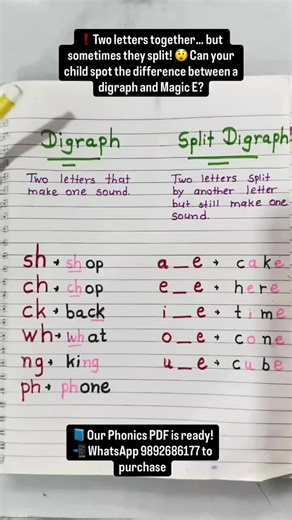 ❗Two letters together... but
sometimes they split! 😲 Can your
child spot the difference between a
digraph and Magic E?
Digraph
Two letters that
make one sound.
sh → shop
ch → chop
ck → back
wh → what
ng → king
ph → phone
Split Digraph!
Two letters split
by another letter
but still make one
sound.
a_e → cake
e_e → here
i_e → time
o_e → cone
u_e → cube
📘 Our Phonics PDF is ready!
📲 WhatsApp 9892686177 to
purchase